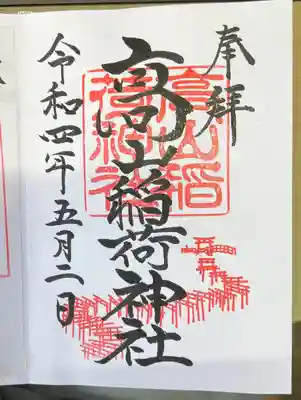 奉拝
高山稲荷神社
令和四年五月二日
高山稲
荷神社